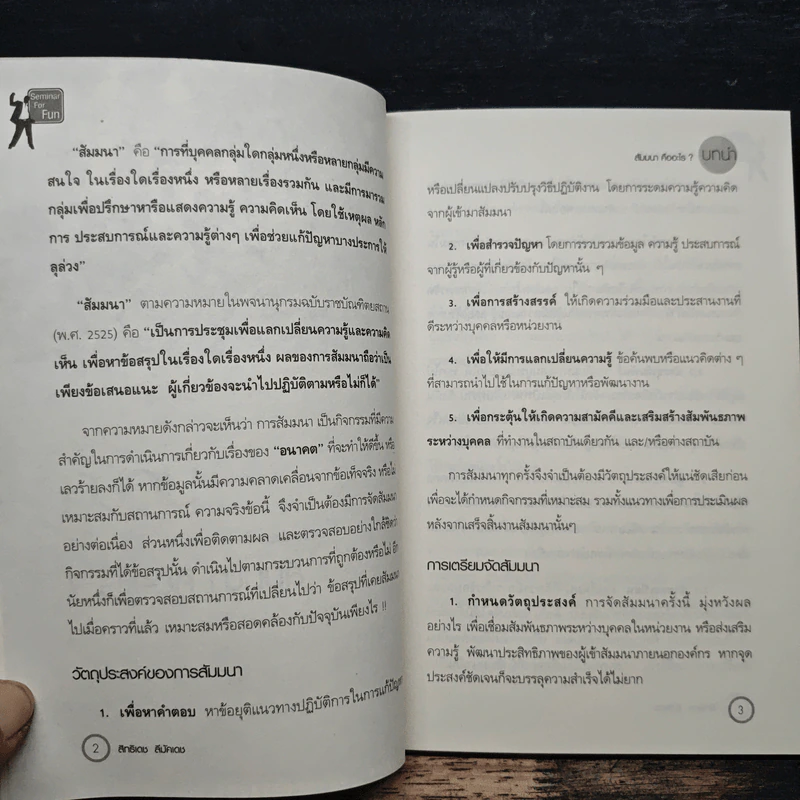 Seminar
For
Fun
“สัมมนา” คือ “การที่บุคคลกลุ่มใดกลุ่มหนึ่งหรือหลายกลุ่มมีความ
สนใจ ในเรื่องใดเรื่องหนึ่ง หรือหลายเรื่องรวมกัน และมีการมารวม
กลุ่มเพื่อปรึกษาหารือแสดงความรู้ ความคิดเห็น โดยใช้เหตุผล หลัก
การ ประสบการณ์และความรู้ต่างๆ เพื่อช่วยแก้ปัญหาบางประการให้
ลุล่วง”
“สัมมนา” ตามความหมายในพจนานุกรมฉบับราชบัณฑิตยสถาน
(พ.ศ. 2525) คือ “เป็นการประชุมเพื่อแลกเปลี่ยนความรู้และความคิด
เห็น เพื่อหาข้อสรุปในเรื่องใดเรื่องหนึ่ง ผลของการสัมมนาถือว่าเป็น
เพียงข้อเสนอแนะ ผู้เกี่ยวข้องจะนำไปปฏิบัติตามหรือไม่ก็ได้”
จากความหมายดังกล่าวจะเห็นว่า การสัมมนา เป็นกิจกรรมที่มีความ
สำคัญในการดำเนินการเกี่ยวกับเรื่องของ “อนาคต” ที่จะทำให้ดีขึ้น หรือ
เลวร้ายลงก็ได้ หากข้อมูลนั้นมีความคลาดเคลื่อนจากข้อเท็จจริง หรือไม่
เหมาะสมกับสถานการณ์ ความจริงข้อนี้ จึงจำเป็นต้องมีการจัดสัมมนา
อย่างต่อเนื่อง ส่วนหนึ่งเพื่อติดตามผล และตรวจสอบอย่างใกล้ชิดว่า
กิจกรรมที่ได้ข้อสรุปนั้น ดำเนินไปตามกระบวนการที่ถูกต้องหรือไม่ อีก
นัยหนึ่งก็เพื่อตรวจสอบสถานการณ์ที่เปลี่ยนไปว่า ข้อสรุปที่เคยสัมมนา
ไปเมื่อคราวที่แล้ว เหมาะสมหรือสอดคล้องกับปัจจุบันเพียงไร !!
วัตถุประสงค์ของการสัมมนา
1. เพื่อหาคำตอบ หาข้อยุติแนวทางปฏิบัติการในการแก้ปัญหา
2 สิทธิเดช ลีมัคเดช
สัมมนา คืออะไร ? บทนำ
หรือเปลี่ยนแปลงปรับปรุงวิธีปฏิบัติงาน โดยการระดมความรู้ความคิด
จากผู้เข้ามาสัมมนา
2. เพื่อสำรวจปัญหา โดยการรวบรวมข้อมูล ความรู้ ประสบการณ์
จากผู้รู้หรือผู้ที่เกี่ยวข้องกับปัญหานั้น ๆ
3. เพื่อการสร้างสรรค์ ให้เกิดความร่วมมือและประสานงานที่
ดีระหว่างบุคคลหรือหน่วยงาน
4. เพื่อให้มีการแลกเปลี่ยนความรู้ ข้อค้นพบหรือแนวคิดต่าง ๆ
ที่สามารถนำไปใช้ในการแก้ปัญหาหรือพัฒนางาน
5. เพื่อกระตุ้นให้เกิดความสามัคคีและเสริมสร้างสัมพันธภาพ
ระหว่างบุคคล ที่ทำงานในสถาบันเดียวกัน และ/หรือต่างสถาบัน
การสัมมนาทุกครั้งจึงจำเป็นต้องมีวัตถุประสงค์ให้แน่ชัดเสียก่อน
เพื่อจะได้กำหนดกิจกรรมที่เหมาะสม รวมทั้งแนวทางเพื่อการประเมินผล
หลังจากเสร็จสิ้นงานสัมมนานั้นๆ
การเตรียมจัดสัมมนา
1. กำหนดวัตถุประสงค์ การจัดสัมมนาครั้งนี้ มุ่งหวังผล
อย่างไร เพื่อเชื่อมสัมพันธภาพระหว่างบุคคลในหน่วยงาน หรือส่งเสริม
ความรู้ พัฒนาประสิทธิภาพของผู้เข้าสัมมนาภายนอกองค์กร หากจุด
ประสงค์ชัดเจนก็จะบรรลุความสำเร็จได้ไม่ยาก
3